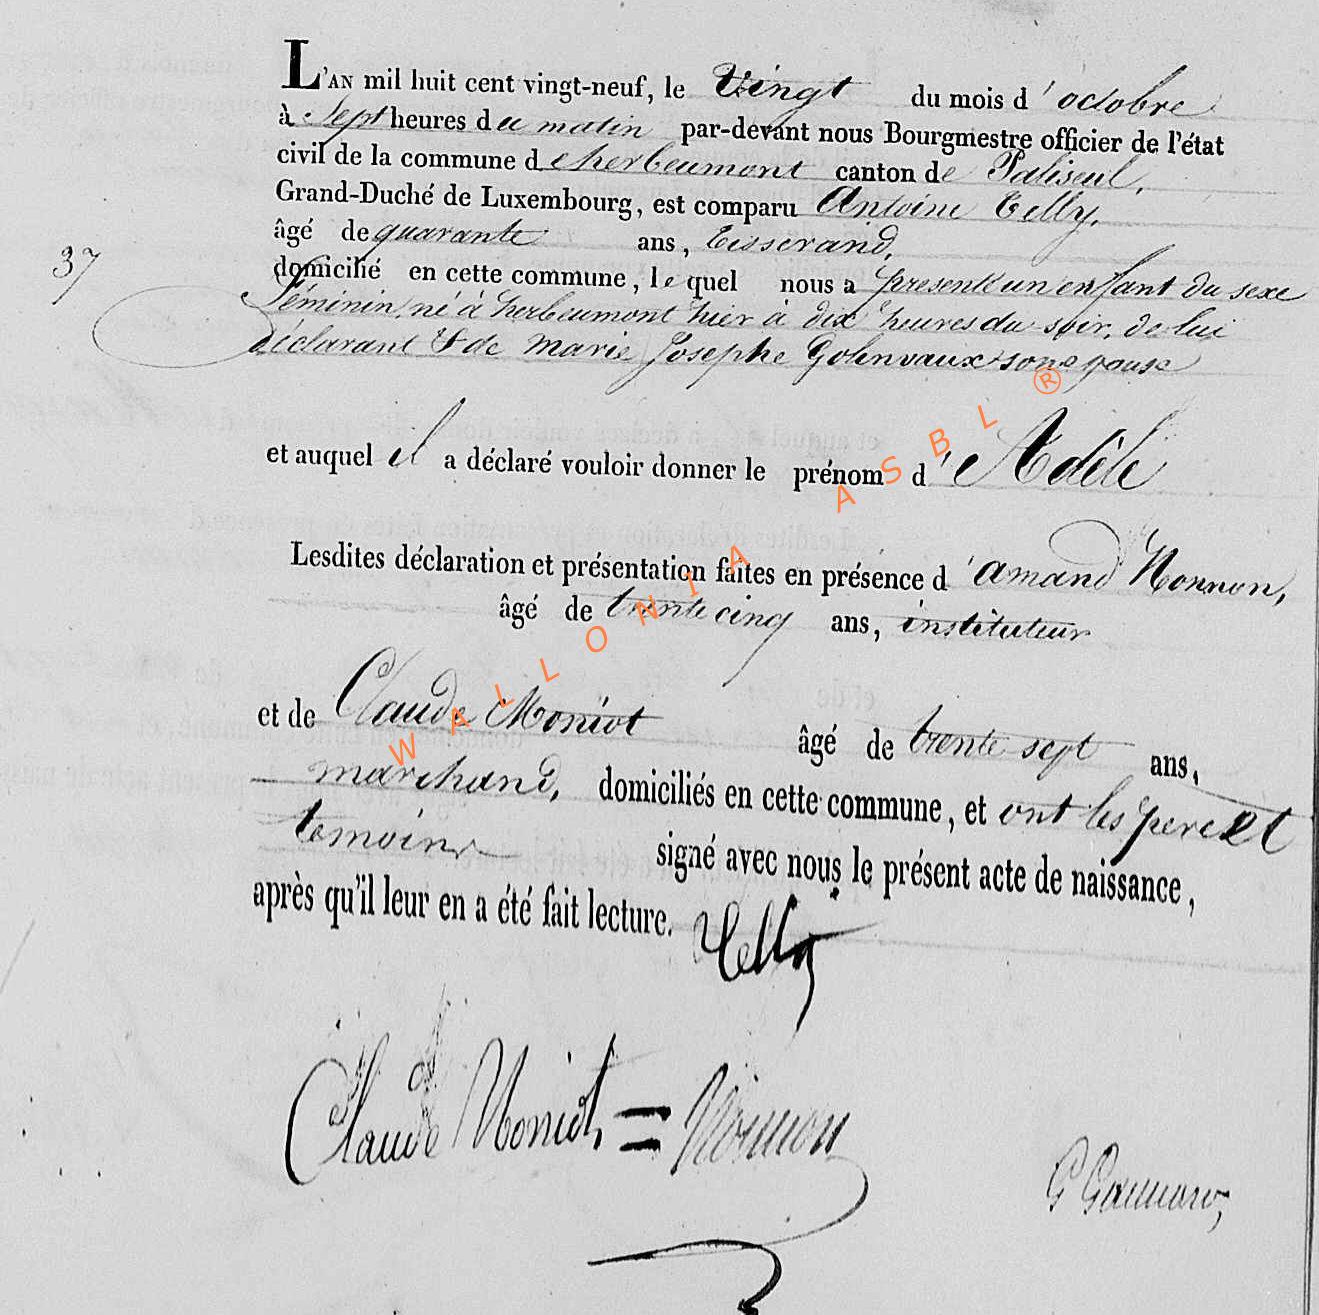 L'AN mil huit cent vingt-neuf, le vingt du mois d'octobre
à Sept heures du matin par-devant nous Bourgmestre officier de l'état
civil de la commune d'herbeumont canton de Paliseul,
Grand-Duché de Luxembourg, est comparu Antoine Telly,
âgé de quarante ans, tisserand,
domicilié en cette commune, lequel nous a presenté un enfant du sexe
37
féminin, né à herbeumont hier à dix heures du soir, de lui
déclarant & de Marie Josephe Golenvaux son epouse
et auquel il a déclaré vouloir donner le prénom d'Adèle
Lesdites déclaration et présentation faites en présence d'amand Nonnon,
âgé de trente cinq ans, instituteur
et de Claude Moniot âgé de trente sept ans,
marchand, domiciliés en cette commune, et ont les pere et
temoins signé avec nous le présent acte de naissance,
après qu'il leur en a été fait lecture.
Telly
Claude Moniot = Nonnon
WALLONIA ASBL ®